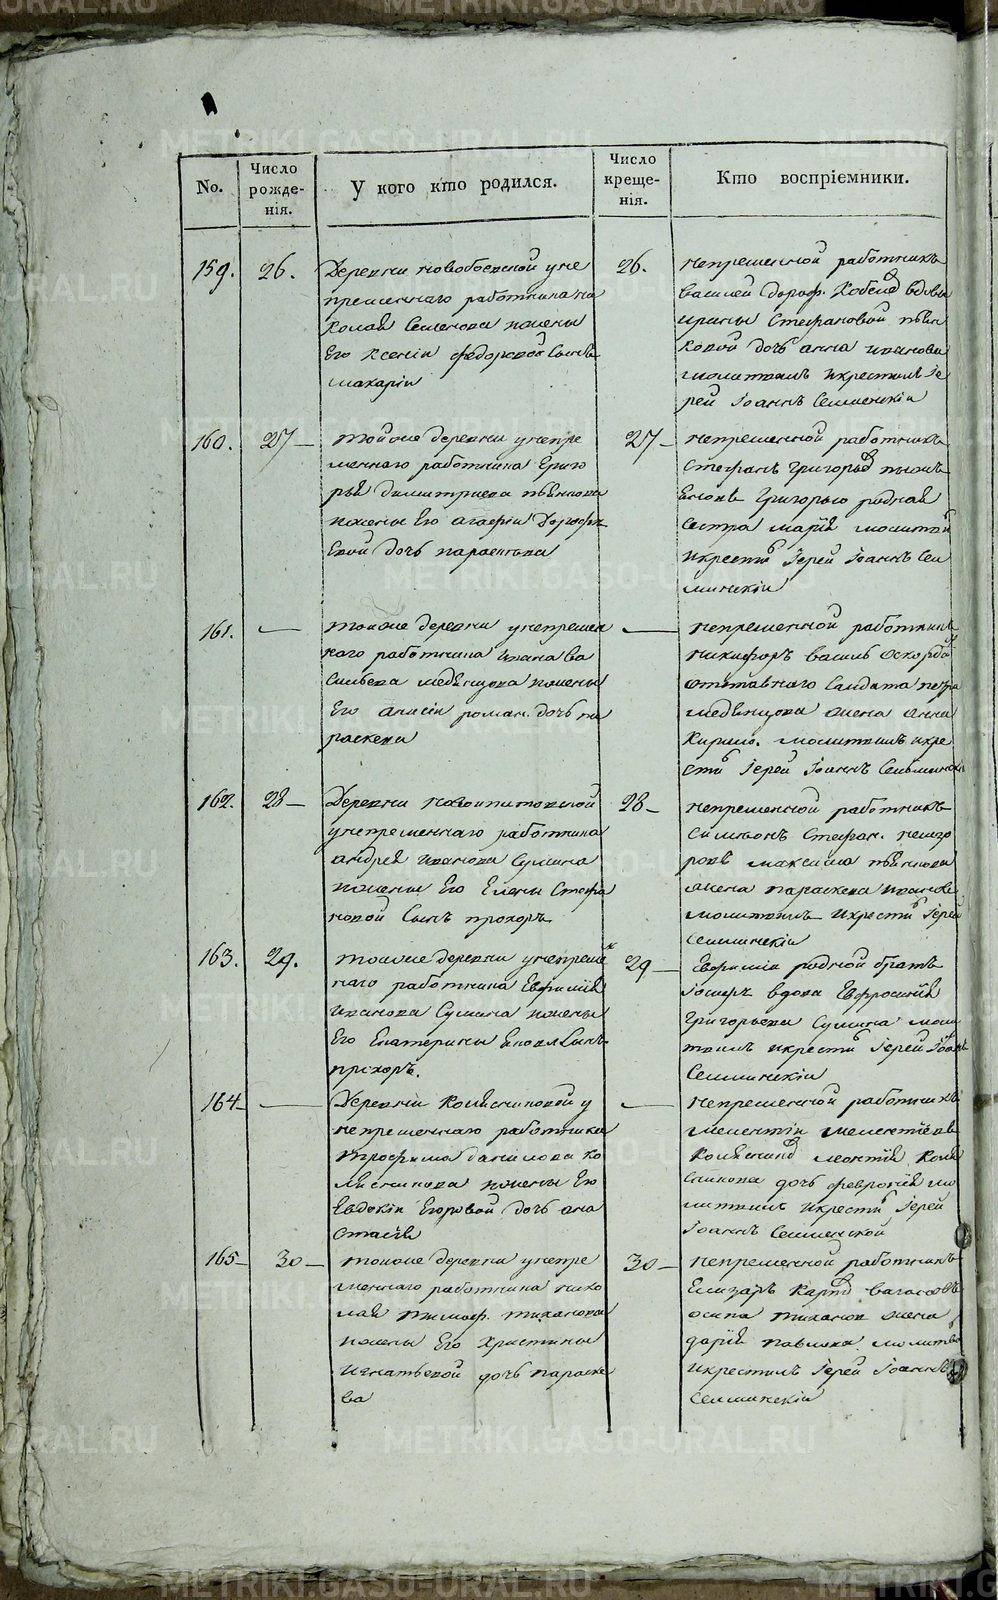 No.
Число рожде-нія.
У кого кто родился.
Число креще-нія.
Кто воспріемники.
159.
26.
Деревни новобоевской уне
пременнаго работника ни
колая Семенова ижены
Его Ксеніи федоровой Сынъ
макаріи
26.
непременной работникъ
василей дороф. вдовы
ирины Стефановой
дочь анна иванова
молитвилъ икрестилъ Іе
рей Іоаннъ Селминскіи
160.
27
тойже деревни унепре
меннаго работника Григо
рья димитриева
ижены Его агафіи Дорофе
Евой дочь парасковья
27
непременной работникъ
Стефанъ григорьев
Григорью родная
Сестра марія молитвил
икрести Іерей Іоаннъ Сел
минскіи
161.
тойже деревни унепремен
наго работника ивана ва
Сильева медвенцова ижены
Его роман. дочь па
раскева
непременной работник
никифоръ василь
отставнаго Салдата петра
медвенцова жена анна
Кирило. молитвилъ икре
сти Іерей Іоаннъ Селминскіи
162.
28
Деревни
унепременнаго работника
андрея иванова Сумина
ижены Его Елены Стефа
новой Сынъ прохоръ
28
непременной работникъ
Симіонъ Стефан.
максима
жена параскева иванова
молитвилъ икрести Іерей
Селминскіи
163.
29.
тойже деревни унепремен
наго работника Евфимія
иванова Сумина ижены
Его Екатерины Сынъ
прохоръ.
29
Евфимія родной братъ
Іосифъ вдова Евфросинія
григорьева Сумина моли
твилъ икрести Іерей Іоаннъ
Селминскіи
164
Деревни Колясниковой у
непременнаго работника
трофима данилова Ко
лясникова ижены Его
Евдокіи Егоровой дочь ана
стасія
непременной работникъ
мелентіи мелентіевъ
Колясников Коля
сникова дочь февронія мо
литвилъ икрести Іерей
Іоаннъ Селминской
165
30
тойже деревни унепре
меннаго работника нико
лая тимоф. тиханова
ижены Его Христины
игнатьевой дочь параске
ва
30
непременной работникъ
Елизаръ Карпов
осипа тиханов жена
дарія павлова молитвил
икрестилъ Іерей Іоаннъ
Селминскіи
METRIKI.GASO-URAL.RU